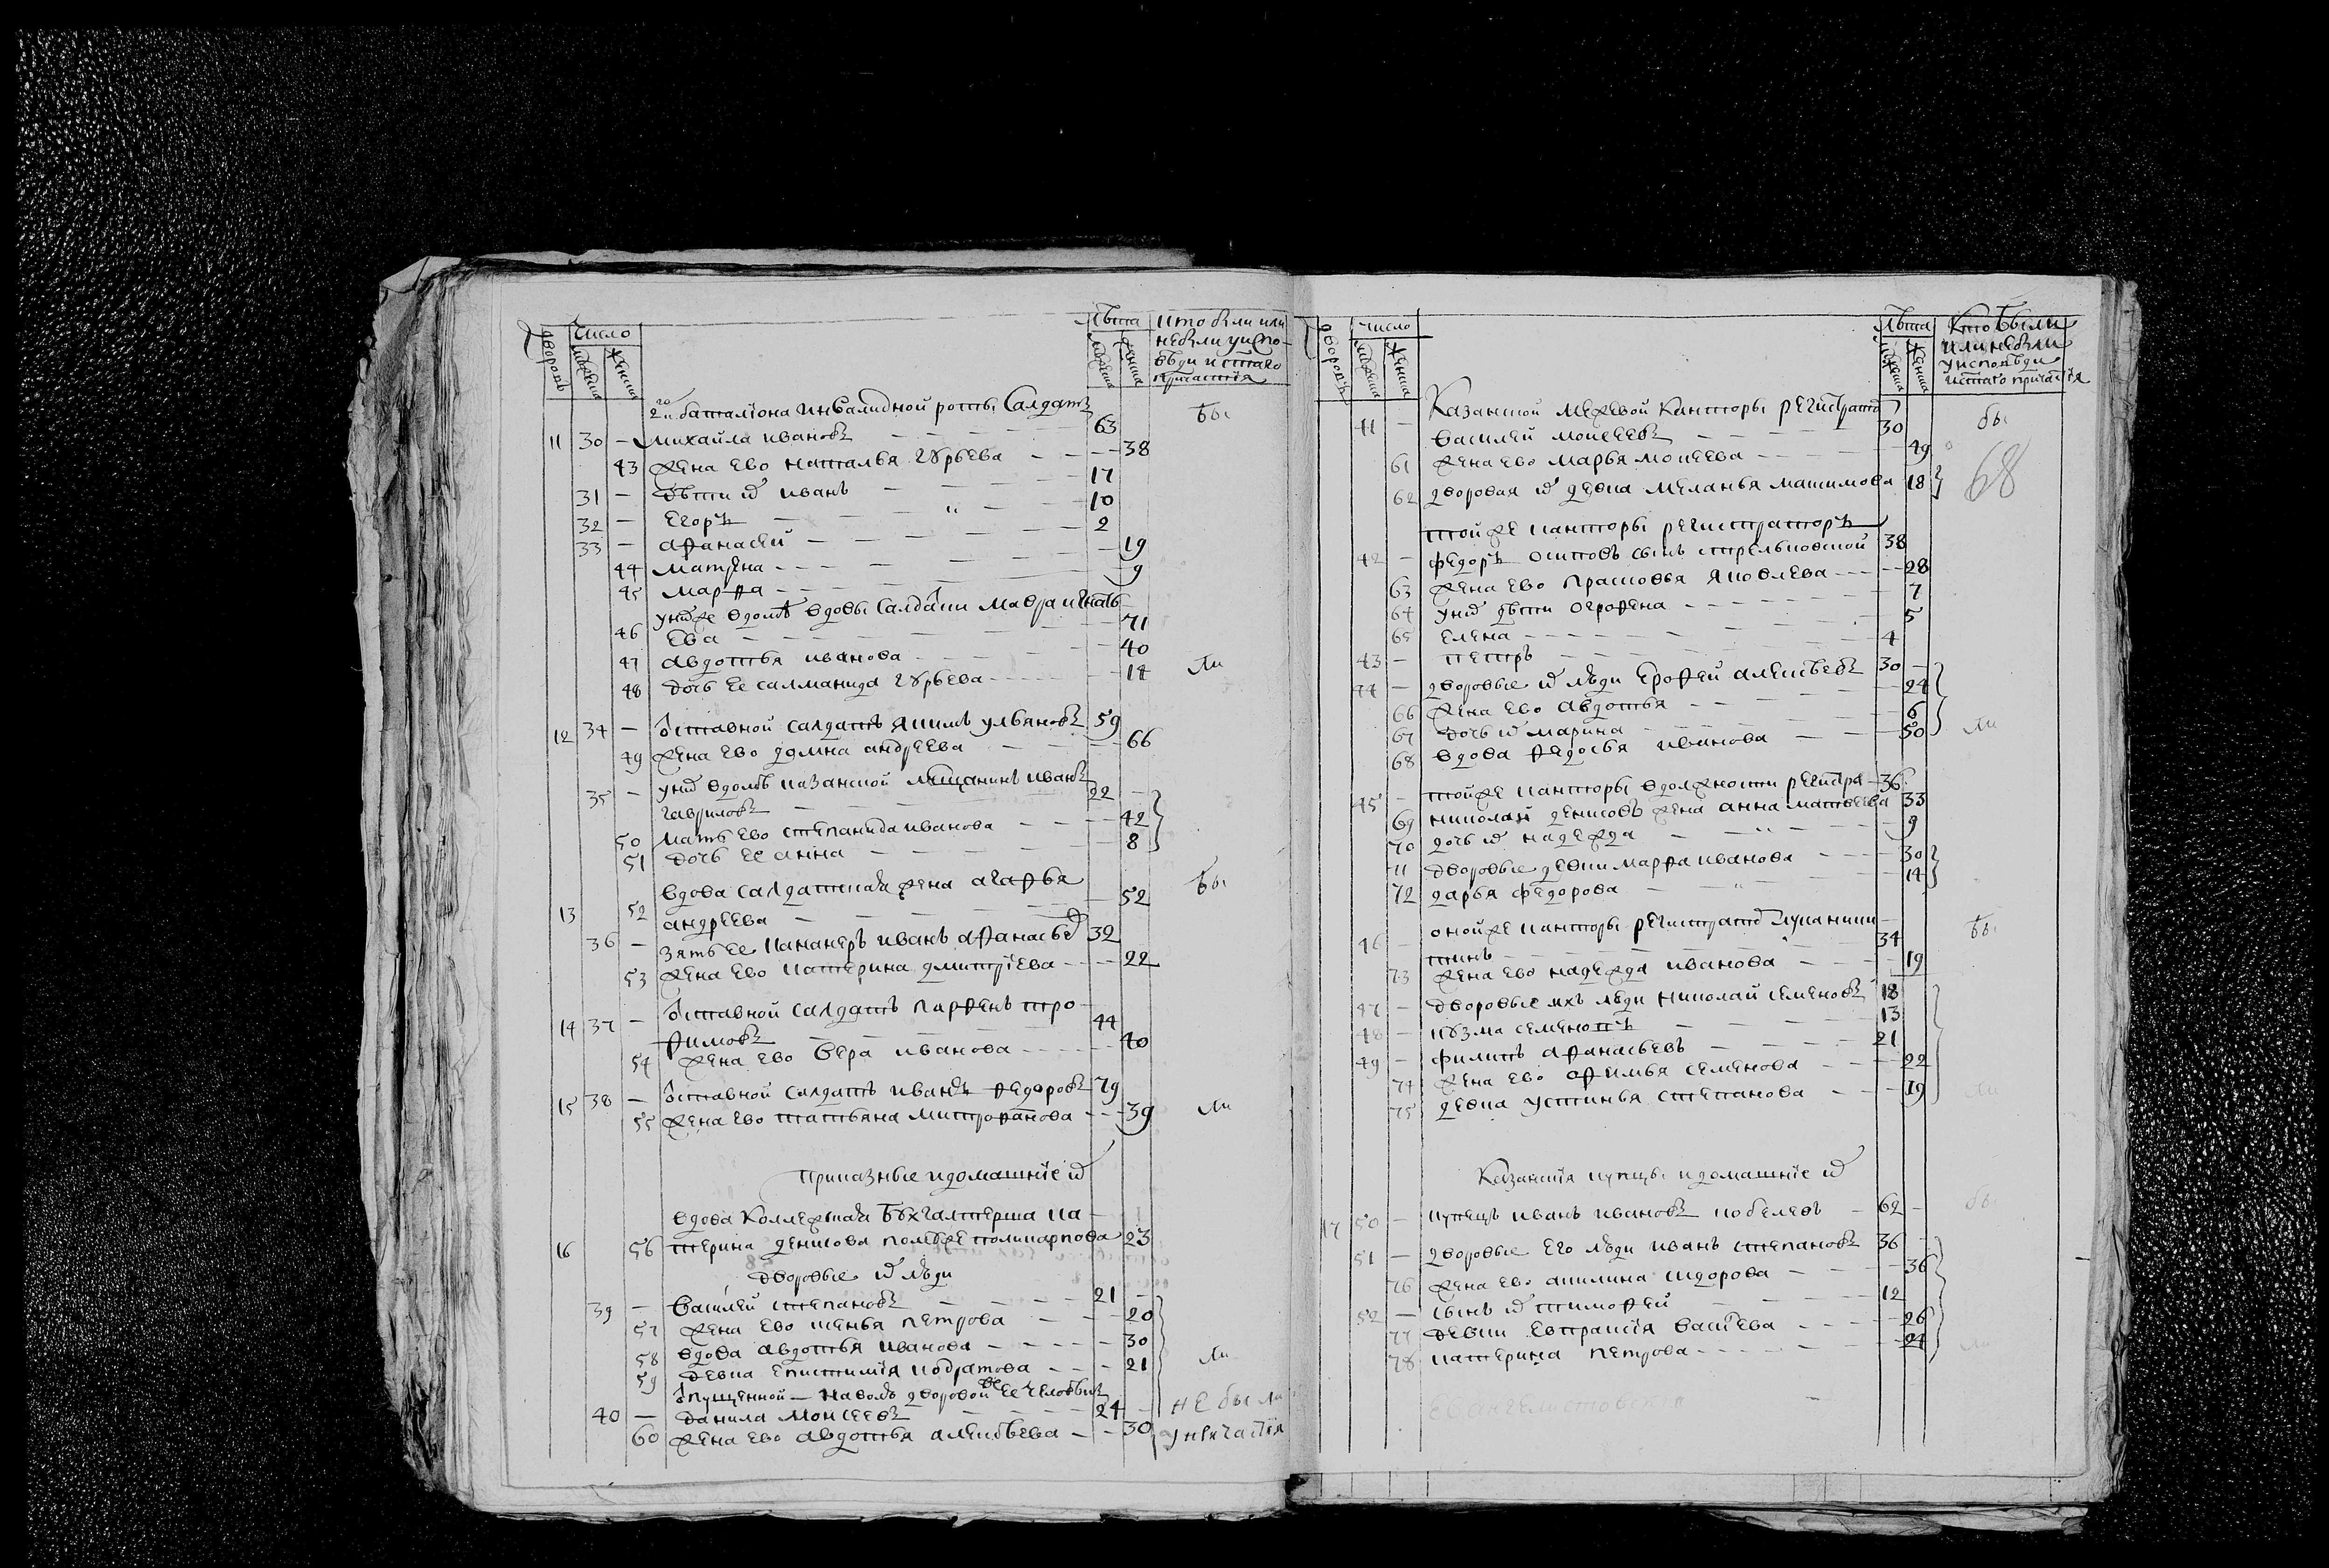 дворовъ
число
мужеска
женска
лѣта
мужеска
женска
кто были или
не были у испо-
вѣди и с͞таго
причастїя
2го баталїона инвалидной роты Салдатъ
11 30 — михайла ивановъ — 63 бы
43 жена ево наталья гурьева — 38
31 — дѣти их иванъ — 17
32 — егоръ — 10
33 — афанасей — 2
44 матрена — 19
45 марфа — 9
у них же вдомѣ вдовы салдатки мавра игнать
46 ева — 71
47 авдотья иванова — 40
48 дочь ее салманида гурьева — 14 ли
12 34 — отставной салдатъ якимъ ульяновъ 59
49 жена ево домна андреева — 66
у них вдомѣ казанской мещанинъ иванъ
35 — гавриловъ — 22
50 мать ево степанида иванова — 42
51 дочь ее анна — 8
вдова салдатская жена агафья бы
13 52 андреева — 52
36 — зять ее канонеръ иванъ афанасье 32
53 жена ево катерина дмитрїева — 22
14 37 — отставной салдатъ парфенъ тро-
фимовъ — 44
54 жена ево вера иванова — 40
15 38 — отставной салдатъ иванъ федоровъ 79
55 жена ево татьяна митрофанова — 39 ли
приказные и домашнїе их
вдова коллежская бухгалтерша ка-
16 56 терина денисова поликарпова 23
дворовые их люди
39 — василей степановъ — 21
57 жена ево ксенья петрова — 20
58 вдова авдотья иванова — 30
59 девка епистимїя кодратова — 21 ли
отпущенной на волю дворовой ее человекъ
40 — данила моисеевъ — 24 — не были
60 жена ево авдотья алексѣева — 30 у причастїя
дворовъ
число
мужеска
женска
лѣта
мужеска
женска
Кто были
или не были
у исповѣди
и с͞таго причастїя
Казанской межевой канторы регистрато
41 — василей моисеевъ — 30 бы
61 жена ево марья мокеева — 49
62 дворовая их девка меланья максимова 18
68
той же канторы регистраторъ
42 — федоръ осиповъ сынъ стрельковской 38
63 жена ево прасковья яковлева — 28
64 у них дѣти огрофена — 7
65 елена — 5
43 — петръ — 4
44 — дворовые их люди ерофей алексѣевъ 30
66 жена ево авдотья — 24
67 дочь их марина — 6
68 вдова федосья иванова — 50 ли
45 — той же канторы в должности регистра 36
69 николай денисовъ жена анна матвеева 33
70 дочь их надежда — 9
71 дворовые девки марфа иванова — 30
72 дарья федорова — 14
оной же канторы регистрато
46 — кинъ — 34 бы
73 жена ево надежда иванова — 19
47 — дворовые ихъ люди николай семеновъ 18
48 — кузма семеновъ — 13
49 — филипъ афанасьевъ — 21
74 жена ево афимья семенова — 22
75 девка устинья степанова — 19 ли
Казанскїя купцы и домашнїе их
17 50 — купецъ иванъ ивановъ кобелевъ — 62 бы
51 — дворовые его люди иванъ степановъ 36
76 жена ево акилина сидорова — 36
52 — сынъ их тимофей — 12
77 девки евпраксїя васїева — 26
78 катерина петрова — 24 ли